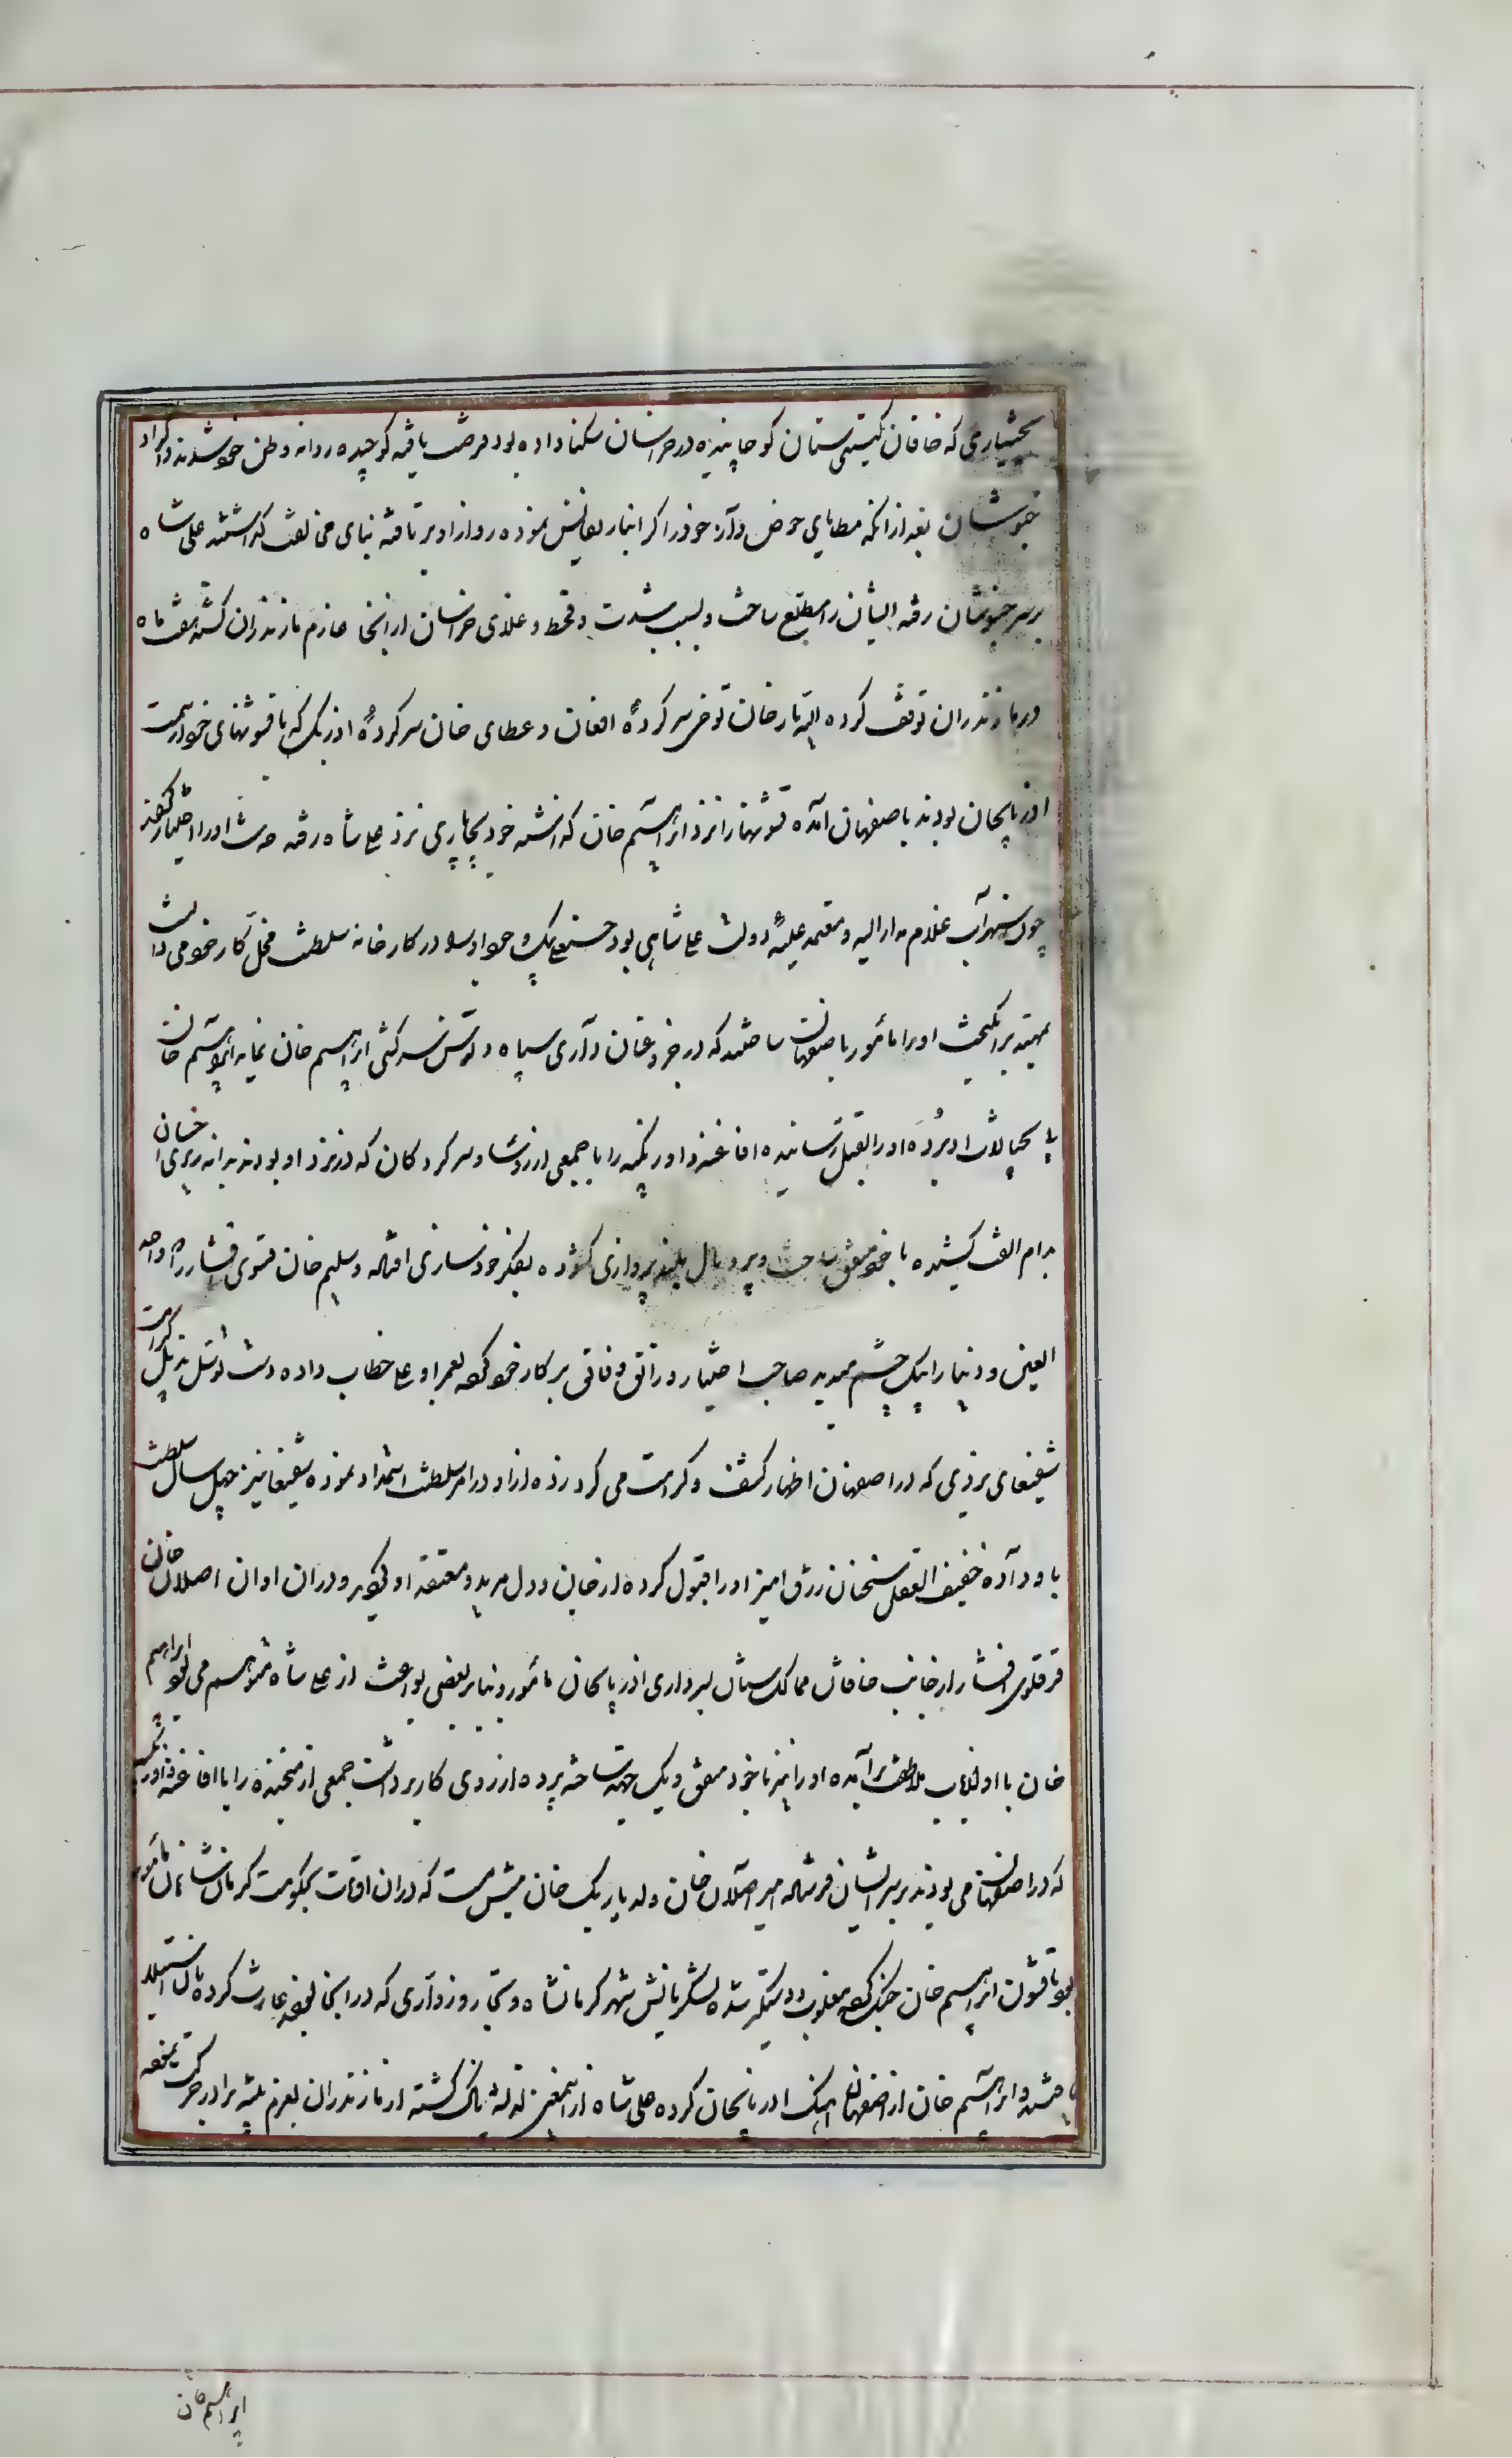 بختیاری که خاقان گیتی ستان کوچانیده در خراسان سکنا داده بود فرصت یافته کوچیده روانه وطن خود شدند و اکراد
خبوشان بعد از آنکه مطایای حوض و آز خود را گرانبار نفایس نموده رو از او برتافته بنای مخالفت گذاشتند علی شاه
بر سر خبوشان رفته ایشان را مطیع ساخت و بسبب شدت و قحط و غلای خراسان از آنجا عازم مازندران گشته هفت ماه
در مازندران توقف کرده الهیار خان توخی سرکرده افغان و عطای خان سرکرده اوزبک که با قشونهای خود در سمت
اذربایجان بودند باصفهان آمده قشونها را نزد ابراهیم خان گذاشته خود بچاپاری نزد علی شاه رفته او را اختیار کردند
چون سهراب غلام مدار الیه و معتمد علیه دولت علی شاهی بود حسنعلی بیک وجود او را در کارخانه سلطنت مخل کار خود می دانست
تمهید برانگیخت او را مأمور باصفهان ساختند که در خرد عنان داری سپاه و توسن سرکشی ابراهیم خان نماید ابراهیم خان
پی بخیالات او برده او را بقتل رسانیده افاغنه و اوزبکیه را با جمعی از رؤسا و سرکردگان که در نزد او بودند بدانه ریزی
بدام الفت کشیده با خود متفق ساخت و پر و بال بلند پروازی گشوده بفکر خودسازی افتاد و سلیم خان قشوی افشار را که واحد
العین و دنیا را بیک چشم میدید صاحب اختیار و راتق و فاتق هر کار خود کرده بعمر او علی خطاب داده دست توسل بذیل کرامت
شفیعای یزدی که در اصفهان اظهار کشف و کرامت می کرد زده از او در امر سلطنت استمداد نموده شفیعا نیز چهل سال سلطنت
باو داده خفیف العقل سخنان زرق آمیز او را قبول کرده از جان و دل مرید و معتقد او گردید و در آن اوان اصلان خان
قرقلوی افشار از جانب خاقان ممالک ستان بسرداری اذربایجان مأمور و بنابر بعضی بواعث از علی شاه متوهم می بود ابراهیم
خان با او از باب ملاطفت برآمده او را نیز با خود متفق و یک جهت ساخته پرده از روی کار برداشت جمعی از متجنده را با افاغنه و اوزبکیه
که در اصفهان می بودند بر سر ایشان فرستاد امیر اصلان خان ولد یاربیک خان میش مست که در آن اوقات بحکومت کرمانشاهان مأمور
بود با قشون ابراهیم خان جنگ کرده مغلوب و دستگیر شده لشکریانش شهر کرمانشاه و تجار و زواری که در آنجا بودند غارت کرده
ساختند و ابراهیم خان از اصفهان آهنگ اذربایجان کرده علی شاه از این معنی تدلت ناک گشته از مازندران بعزم تنبیه برادر حرکت نموده
ابراهیم خان